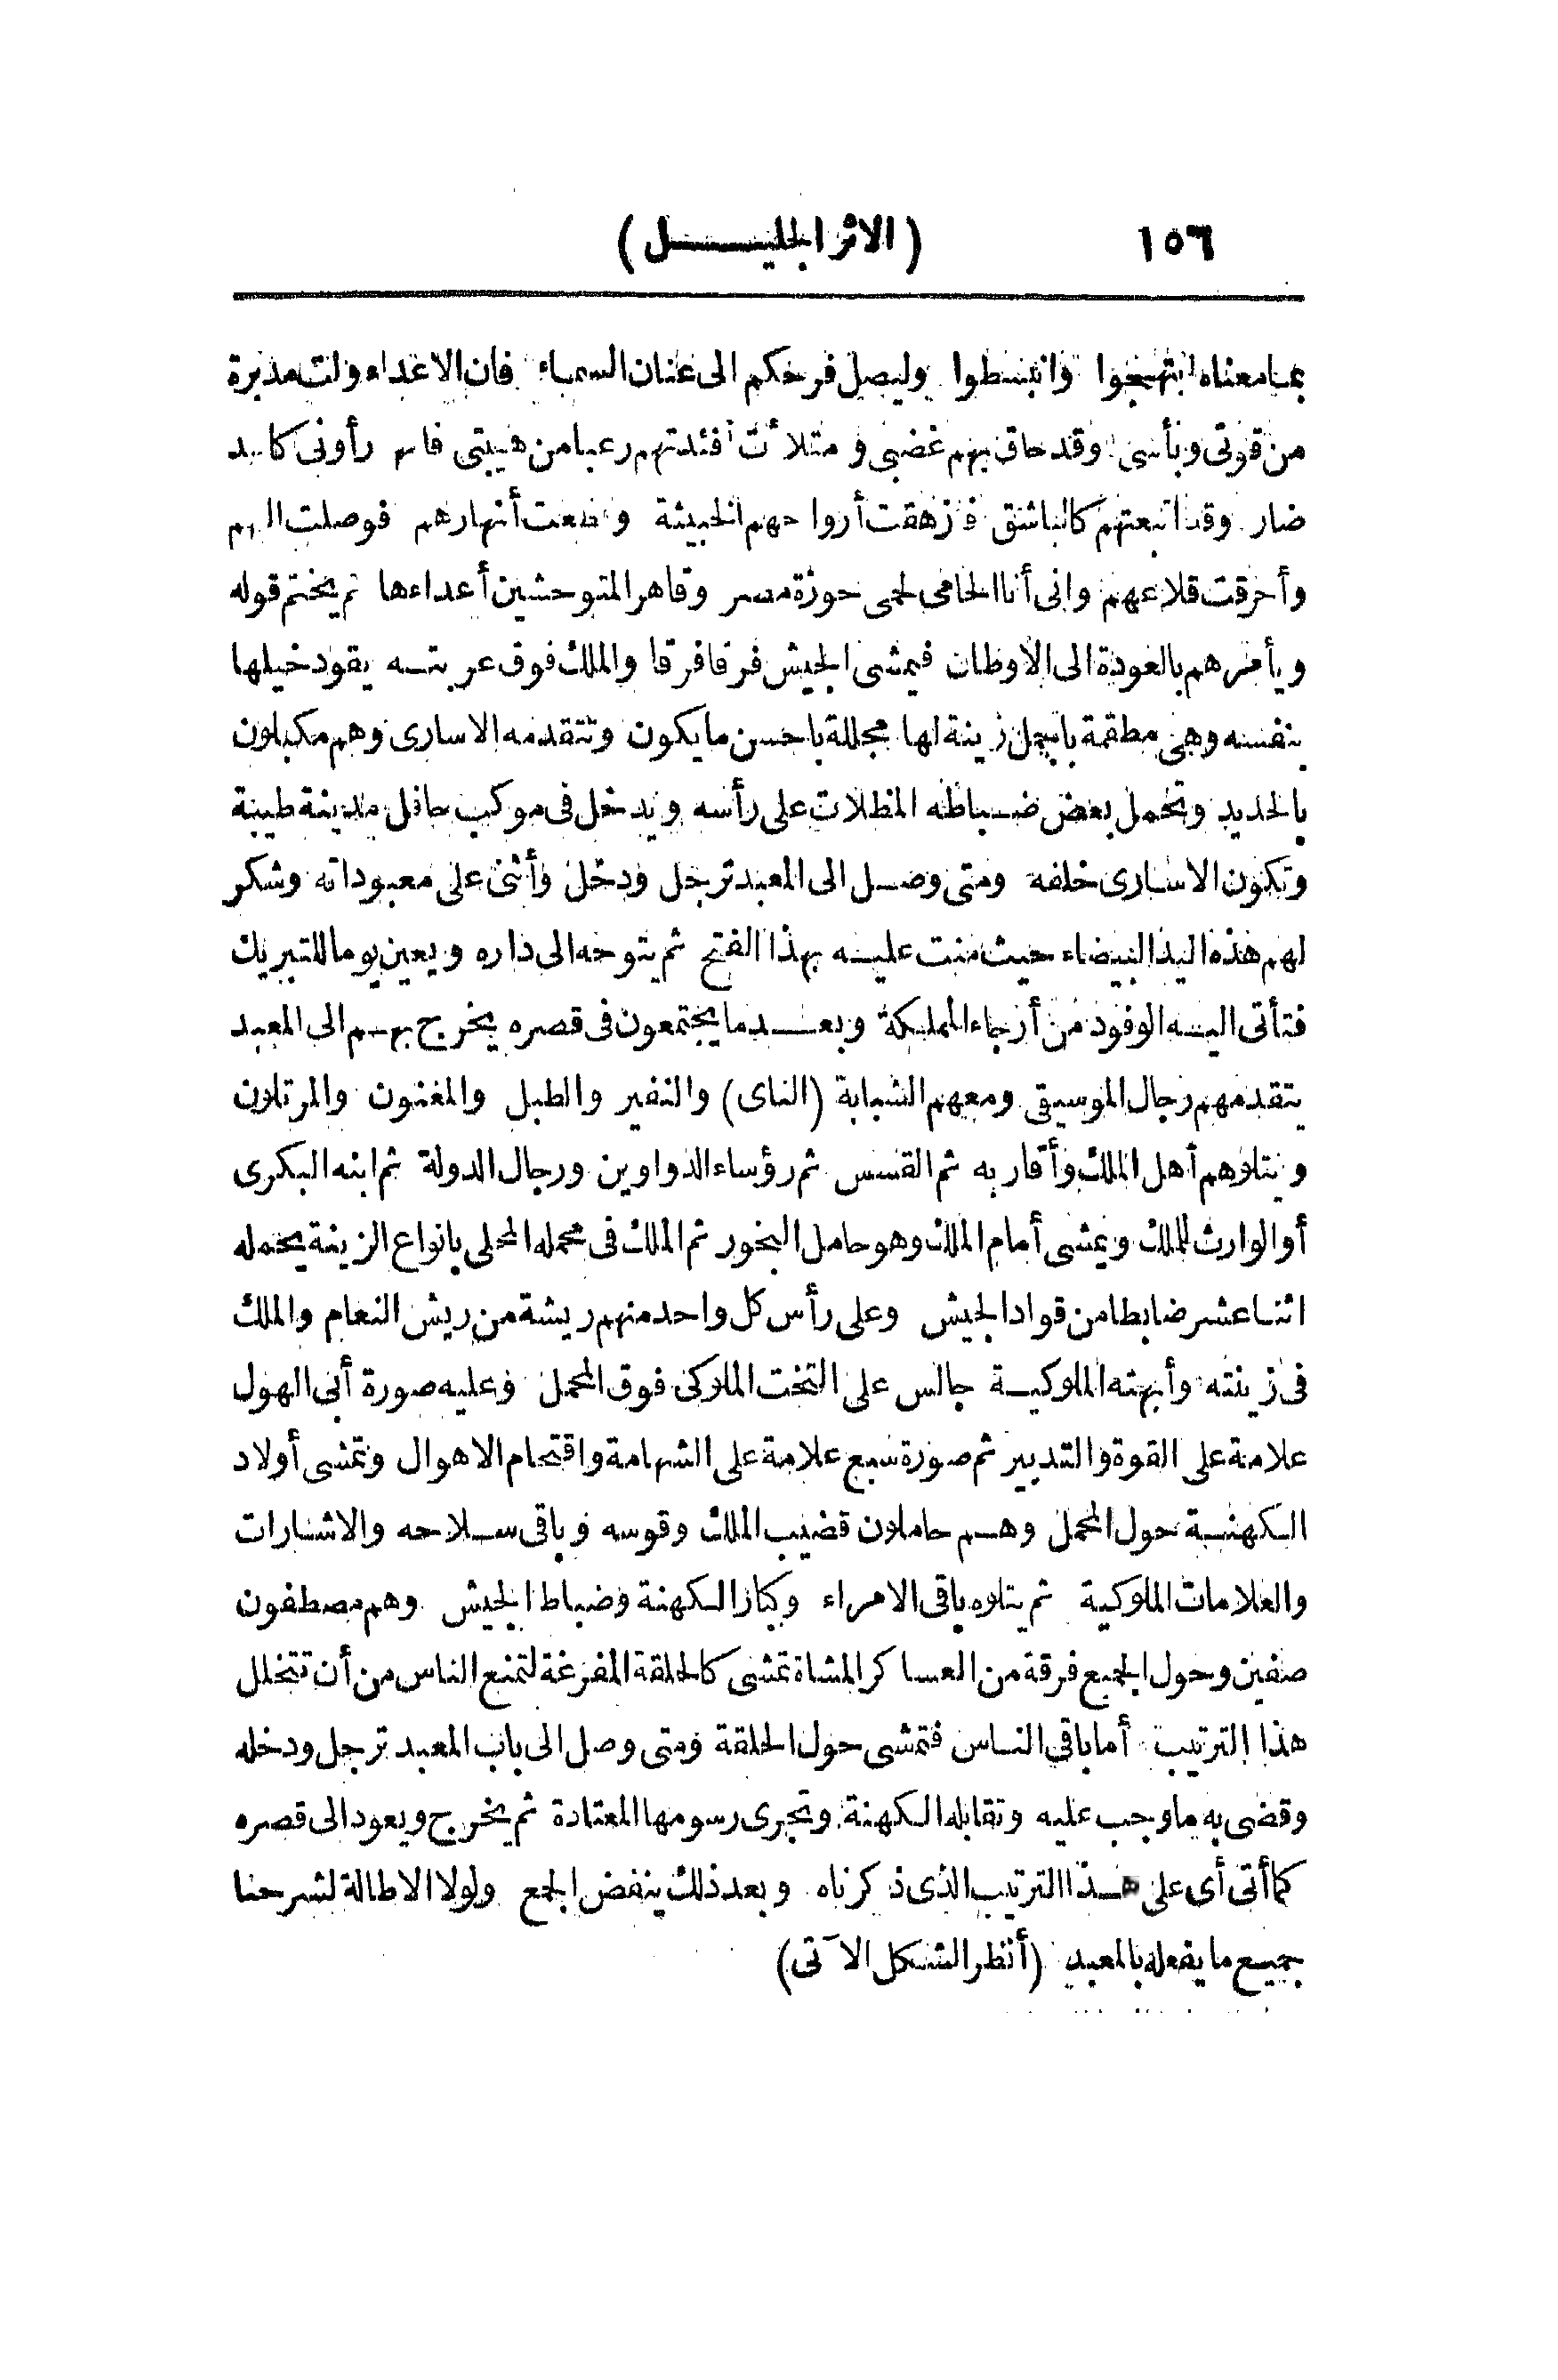 ١٥٦ (الاثر الجليل)
بما معناه ابتهجوا وانبسطوا وليصل فرحكم الى عنان السماء فان الاعداء ولت مدبرة
من قوتى وبأسى وقد حاق بهم غضبى و متلأت أفئدتهم رعبا من هيبتى رأونى
ضار وقد اتبعتهم كالباشق فزهقت أرواحهم الخبيثة أنهارهم فوصلت
وأحرقت قلاعهم وانى أنا الحامى لحمى حوزة مصر وقاهر المتوحشين أعداءها ثم يختم قوله
ويأمرهم بالعودة الى الاوطان فيمشى الجيش فرقا فرقا والملك فوق عربته يقود خيلها
بنفسه وهى مطقمة باجمل زينة لها مجللة باحسن ما يكون وتتقدمه الاسارى وهم مكبلون
بالحديد وتحمل بعض ضباطه المظلات على رأسه ويدخل فى موكب حافل مدينة طيبة
وتكون الاسارى خلفه ومتى وصل الى المعبد ترجل ودخل وأثنى على معبوداته وشكر
لهم هذه اليد البيضاء حيث منت عليه بهذا الفتح ثم يتوجه الى داره ويعين يوما للتبريك
فتأتى اليه الوفود من أرجاء المملكة وبعد ما يجتمعون فى قصره يخرج بهم الى المعبد
يتقدمهم رجال الموسيقى ومعهم الشبابة (الناى) والنفير والطبل والمغنون والمرتلون
ويتلوهم أهل الملك وأقاربه ثم القسس ثم رؤساء الدواوين ورجال الدولة ثم ابنه البكرى
أو الوارث للملك ويمشى أمام الملك وهو حامل البخور ثم الملك فى محمله المحلى بانواع الزينة يحمله
اثنا عشر ضابطا من قواد الجيش وعلى رأس كل واحد منهم ريشة من ريش النعام والملك
فى زينته وأبهته الملوكية جالس على التخت الملوكى فوق المحمل وعليه صورة أبى الهول
علامة على القوة والتدبير ثم صورة سبع علامة على الشهامة واقتحام الاهوال وتمشى أولاد
الكهنة حول المحمل وهم حاملون قضيب الملك وقوسه وباقى سلاحه والاشارات
والعلامات الملوكية ثم يتلوه باقى الامراء وكبار الكهنة وضباط الجيش وهم مصطفون
صفين وحول الجميع فرقة من العساكر المشاة تمشى كالحلقة المفرغة لتمنع الناس من أن تتخلل
هذا الترتيب أما باقى الناس فتمشى حول الحلقة ومتى وصل الى باب المعبد ترجل ودخله
وقضى به ما وجب عليه وتقابله الكهنة وتجرى رسومها المعتادة ثم يخرج ويعود الى قصره
كما أتى أى على هذا الترتيب الذى ذكرناه وبعد ذلك ينفض الجمع ولولا الاطالة لشرحنا
جميع ما يفعله بالمعبد (أنظر الشكل الآتى)